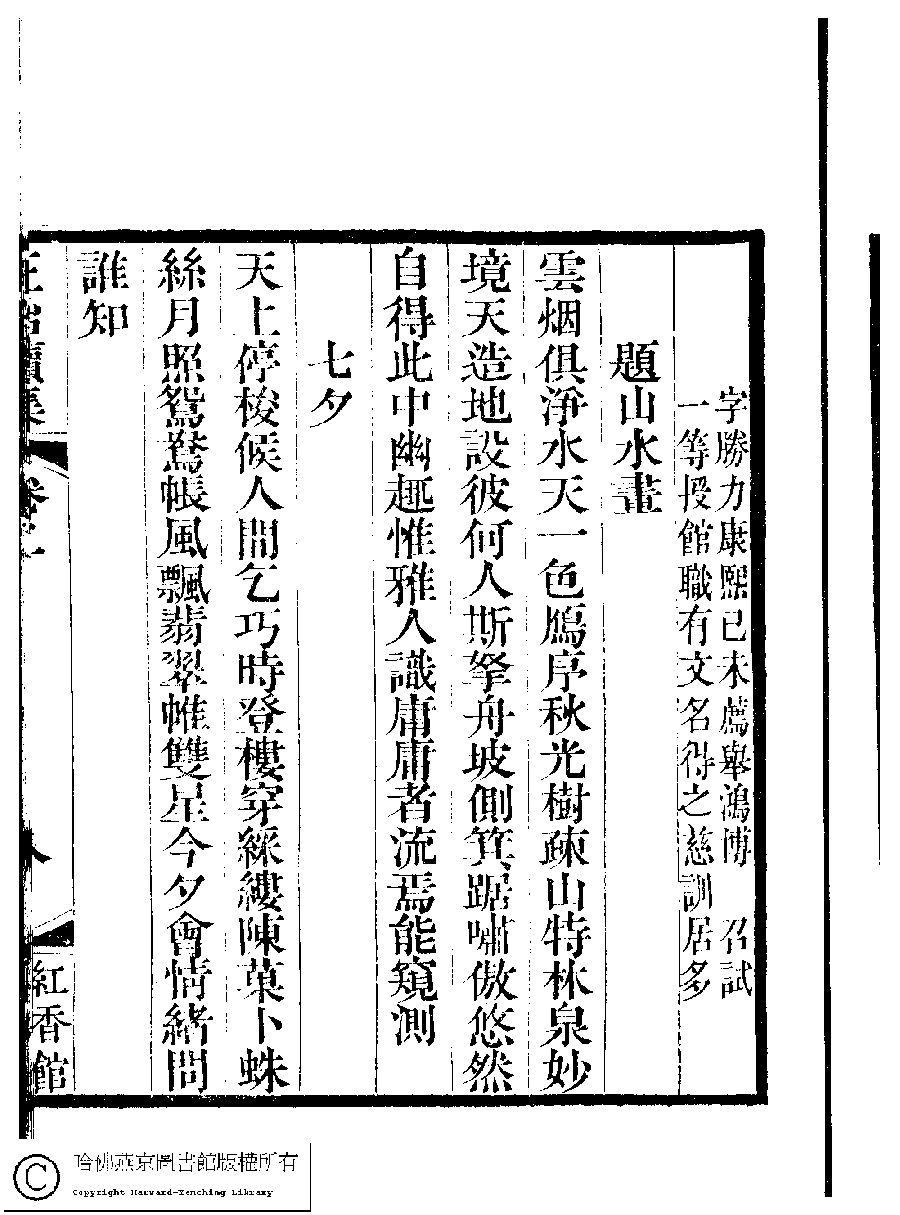 字勝力康熙己未薦舉鴻博　召試
一等授館職有文名得之慈訓居多
題山水畫
雲烟俱淨水天一色鴈序秋光樹疎山特林泉妙
境天造地設彼何人斯拏舟坡側箕踞嘯傲悠然
自得此中幽趣惟雅人識庸庸者流焉能窺測
七夕
天上停梭候人間乞巧時登樓穿綵縷陳菓卜蛛
絲月照鴛鴦帳風飄翡翠帷雙星今夕會情緒問
誰知
正始續集
卷一
八
紅香館
哈佛燕京圖書館版權所有
Copyright Harvard-Yenching Library